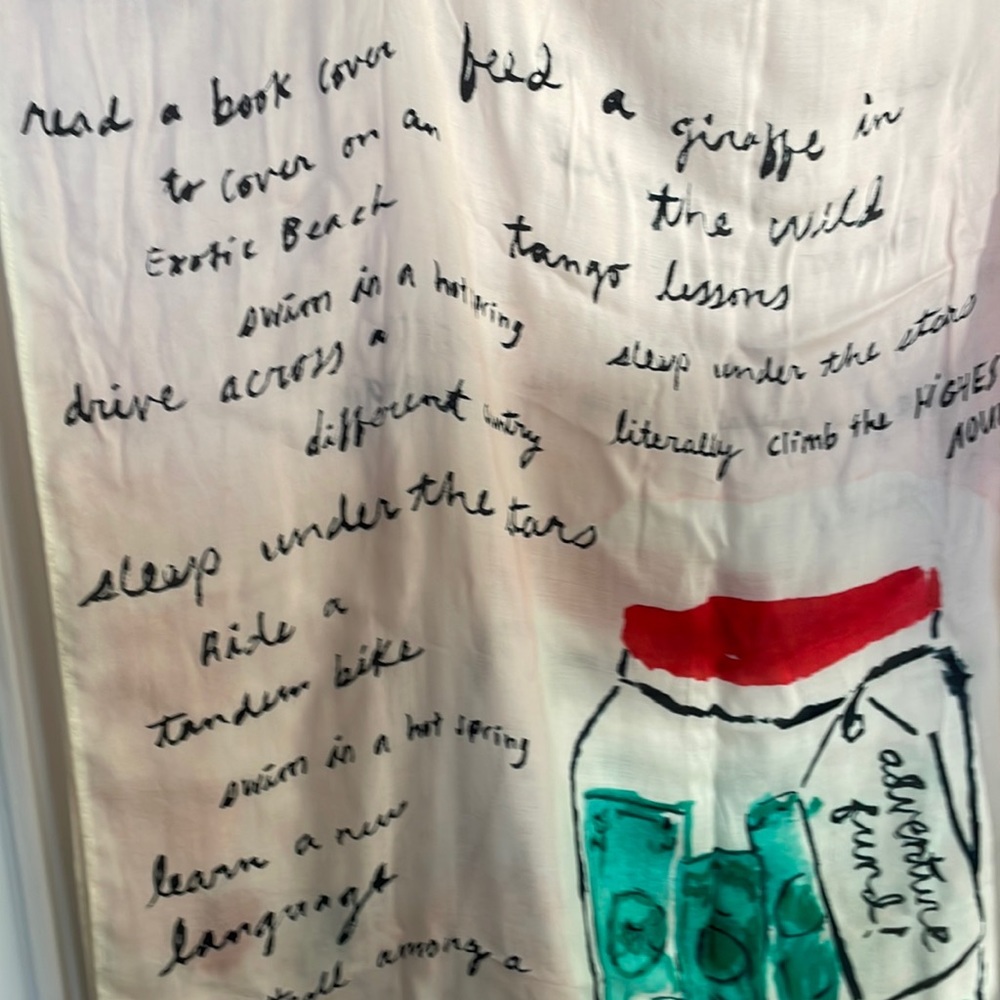 read a book cover
to cover on an
Exotic Beach
swim in a hot spring
drive across a
different country
sleep under the tars
Ride a
tandem bike
swim in a hot spring
learn a new
language
among a
feed a
giraffe in
the wild
tango lessons
sleep under the stars
literally climb the HIGHES
adventure
fund!